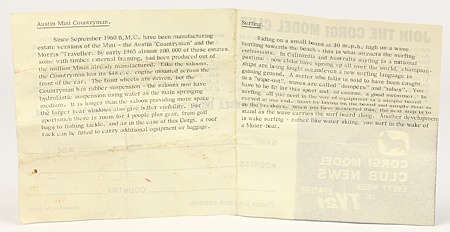 Austin Mini Countryman.
Since September 1960 B.M.C. have been manufacturing
estate versions of the Mini - the Austin "Countryman" and the
Morris "Traveller". By early 1965 almost 100,000 of these estates,
some with timber external framing, had been produced out of
the million Minis already manufactured. Like the saloons,
the Countryman has its 848 c.c. engine mounted across the
front of the car. The front wheels are driven, but the
Countryman has rubber suspension - the saloons now have
hydrolastic suspension using water as the main springing
medium. It is longer than the saloon providing more space -
the larger rear windows also give better visibility. For
sportsmen there is room for 4 people plus gear, from golf
bags to fishing tackle, and as in the case of this Corgi, a roof
rack can be fitted to carry additional equipment or luggage.
Surfing.
Riding on a small board at 30 m.p.h. high on a wave
hurtling towards the beach - this is what attracts the surfing
enthusiasts. In California and Australia surfing is a national
pastime - now clubs have sprung up all over the world, champion-
ships are being fought and even a new surfing language is
gaining ground. A surfer who falls is said to have been caught
in a "wipe-out", waves are called "dumpers" and "tubes". You
have to be fit for this sport and, of course, a good swimmer. In
surfing all you need is the use of equipment is a simple board
carried at one end. Start by laying on the board and
on the breakers. When you have mastered this, the next step is to
stand as the wave carries the surf board along. Another development
is wake surfing - rather like water skiing, you surf in the wake of
a Motor-boat.
JOIN THE CORGI MODEL
CORGI MODEL
CLUB NEWS
EVERY WEEK
TV21
COUNTRY